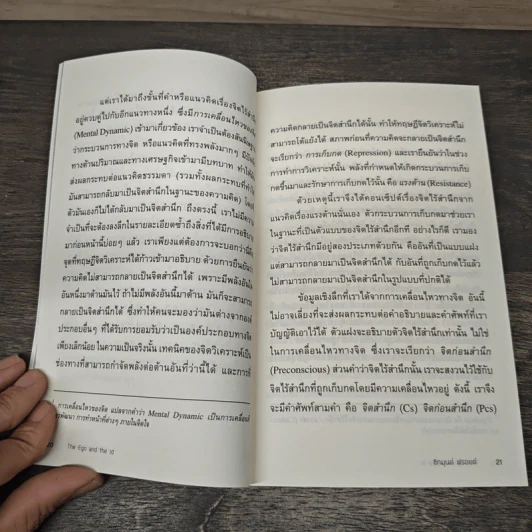 แต่เราได้มาถึงขั้นที่คำหรือแนวคิดเรื่องจิตไร้สำนึก
อยู่ควบคู่ไปกับอีกแนวทางหนึ่ง ซึ่งมีการเคลื่อนไหวของ
(Mental Dynamic) เข้ามาเกี่ยวข้อง เราจำเป็นต้องสันนิษฐาน
ว่ากระบวนการทางจิต หรือแนวคิดที่ทรงพลังมากๆ
ทางด้านปริมาณและทางเศรษฐกิจเข้ามามีบทบาท
ส่งผลกระทบต่อแนวคิดธรรมดา (รวมทั้งผลกระทบที่
มันสามารถกลับมาเป็นจิตสำนึกในฐานะของความคิด)
ตัวมันเองก็ไม่ได้กลับมาเป็นจิตสำนึก ถึงตรงนี้ เราไม่มีความ
จำเป็นที่จะต้องลงลึกในรายละเอียดซ้ำถึงสิ่งที่ได้มีการอธิบาย
มาก่อนหน้านี้บ่อยๆ แล้ว เราเพียงแต่ต้องการจะบอกว่านี่คือ
จุดที่ทฤษฎีจิตวิเคราะห์ได้ก้าวเข้ามาอธิบาย ด้วยการยืนยันว่า
ความคิดไม่สามารถกลายเป็นจิตสำนึกได้ เพราะมีพลัง
อันหนึ่งมาต้านมันไว้ ถ้าไม่มีพลังอันนี้มาต้าน มันก็จะสามารถ
กลายเป็นจิตสำนึกได้ ซึ่งทำให้คนจะมองว่ามันต่างจากองค์
ประกอบอื่นๆ ที่ได้รับการยอมรับว่าเป็นองค์ประกอบทางจิต
เพียงเล็กน้อย ในความเป็นจริงนั้น เทคนิคของจิตวิเคราะห์เป็น
ช่องทางที่สามารถกำจัดพลังต่อต้านอันที่ว่านี้ได้ และการที่
การเคลื่อนไหวของจิต แปลจากคำว่า Mental Dynamic เป็นการเคลื่อนไหว
พัฒนา การทำหน้าที่ต่างๆ ภายในจิตใจ
The Ego and the Id
ความคิดกลายเป็นจิตสำนึกได้นั้น ทำให้ทฤษฎีจิตวิเคราะห์ไม่
สามารถโต้แย้งได้ สภาพก่อนที่ความคิดจะกลายเป็นจิตสำนึก
จะเรียกว่า การเก็บกด (Repression) และเรายืนยันว่าในช่วง
การทำการวิเคราะห์นั้น พลังที่กำหนดให้เกิดกระบวนการเก็บ
กดขึ้นมาและรักษาการเก็บกดไว้นั้น คือ แรงต้าน (Resistance)
ด้วยเหตุนี้เราจึงได้คอนเซ็ปต์เรื่องจิตไร้สำนึกจาก
แนวคิดเรื่องแรงต้านนั่นเอง ตัวกระบวนการเก็บกดมาช่วยเรา
ในฐานะที่เป็นตัวแบบของจิตไร้สำนึกอีกที อย่างไรก็ดี เรามอง
ว่าจิตไร้สำนึกมีอยู่สองประเภทด้วยกัน คืออันที่เป็นแบบแฝง
แต่สามารถกลายมาเป็นจิตสำนึกได้ กับอันที่ถูกเก็บกดไว้แล้ว
ไม่สามารถกลายมาเป็นจิตสำนึกในรูปแบบที่ปกติได้
ข้อมูลเชิงลึกที่เราได้จากการเคลื่อนไหวทางจิต อันนี้
ไม่อาจเลี่ยงที่จะส่งผลกระทบต่อคำอธิบายและคำศัพท์ที่เรา
บัญญัติเอาไว้ได้ ตัวแฝงจะอธิบายตัวจิตไร้สำนึกเท่านั้น ไม่ใช่
ในการเคลื่อนไหวทางจิต ซึ่งเราจะเรียกว่า จิตก่อนสำนึก
(Preconscious) ส่วนคำว่าจิตไร้สำนึกนั้น เราจะสงวนไว้ใช้กับ
จิตไร้สำนึกที่ถูกเก็บกดโดยมีความเคลื่อนไหวอยู่ ดังนี้ เราจึง
จะมีคำศัพท์สามคำ คือ จิตสำนึก (Cs) จิตก่อนสำนึก (Pcs)
ซิกมุนด์ ฟรอยด์ 21